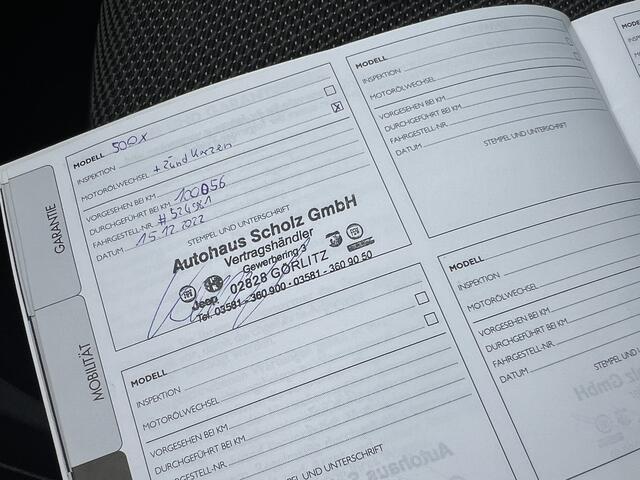 GARANTIE
MOBILITÄT
MODELL 500X
INSPEKTION
MOTORÖLWECHSEL + Zündkerzen
VORGESEHEN BEI KM
DURCHGEFÜHRT BEI KM 100056
FAHRGESTELL-NR. # 524981
DATUM 15.12.2022
STEMPEL UND UNTERSCHRIFT
Autohaus Scholz GmbH
Vertragshändler
Gewerbering 3
02828 GÖRLITZ
Jeep
Tel. 03581 - 360 900 - 03581 - 360 90 50
MODELL
INSPEKTION
MOTORÖLWECHSEL
VORGESEHEN BEI KM
DURCHGEFÜHRT BEI KM
FAHRGESTELL-NR.
DATUM
STEMPEL UND UNTERSCHRIFT
MODELL
INSPEKTION
MOTORÖLWECHSEL
VORGESEHEN BEI KM
DURCHGEFÜHRT BEI KM
FAHRGESTELL-NR.
PEL UND UNTERSCHRIFT
MODELL
INSPEKTION
MOTORÖLWECHSEL
VORGESEHEN BEI KM
DURCHGEFÜHRT BEI KM
FAHRGESTELL-NR.
DATUM
STEMPEL UND U